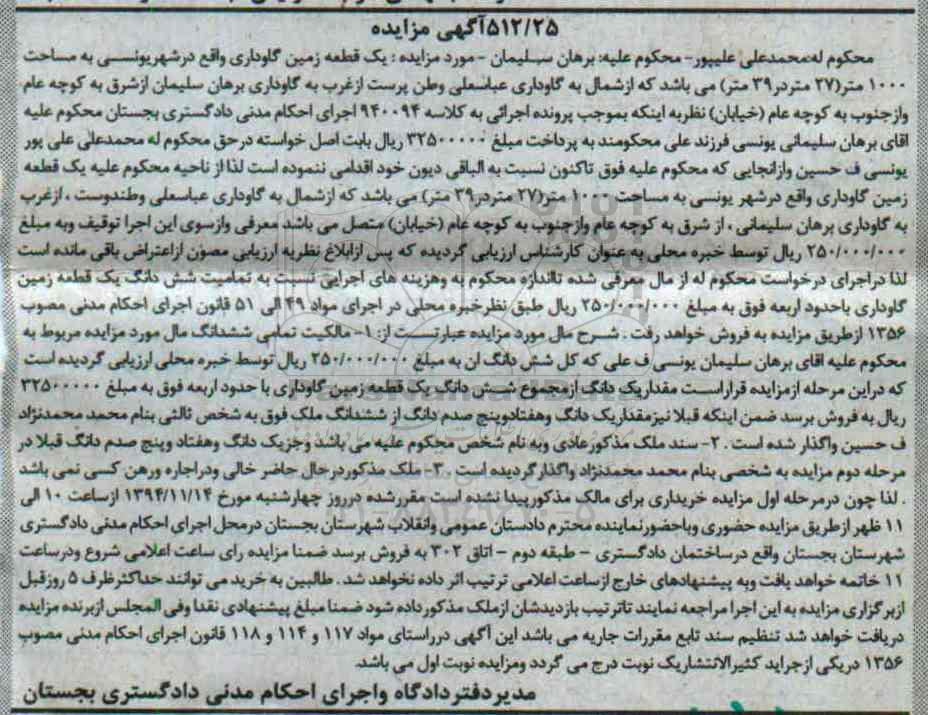 ۵۱۲/۲۵آگهی مزایده
محکوم له:محمدعلی علیپور- محکوم علیه: برهان سلیمان - مورد مزایده : یک قطعه زمین گاوداری واقع درشهریونسی به مساحت
۱۰۰۰ متر(۲۷ متردر۳۹ متر) می باشد که ازشمال به گاوداری عباسعلی وطن پرست ازغرب به گاوداری برهان سلیمان ازشرق به کوچه عام
وازجنوب به کوچه عام (خیابان) نظربه اینکه بموجب پرونده اجرائی به کلاسه ۹۴۰۰۹۴ اجرای احکام مدنی دادگستری بجستان محکوم علیه
اقای برهان سلیمانی یونسی فرزند علی محکومند به پرداخت مبلغ ۳۲۵۰۰۰۰۰ ریال بابت اصل خواسته درحق محکوم له محمدعلی علی پور
یونسی ف حسین وازانجایی که محکوم علیه فوق تاکنون نسبت به الباقی دیون خود اقدامی ننموده است لذا از ناحیه محکوم علیه یک قطعه
زمین گاوداری واقع درشهر یونسی به مساحت ۱۰۰۰ متر(۲۷ متردر۳۹ متر) می باشد که ازشمال به گاوداری عباسعلی وطندوست ، ازغرب
به گاوداری برهان سلیمانی ، از شرق به کوچه عام وازجنوب به کوچه عام (خیابان) متصل می باشد معرفی وازسوی این اجرا توقیف وبه مبلغ
۲۵۰/۰۰۰/۰۰۰ ریال توسط خبره محلی به عنوان کارشناس ارزیابی گردیده که پس ازابلاغ نظریه ارزیابی مصون ازاعتراض باقی مانده است
لذا دراجرای درخواست محکوم له از مال معرفی شده تااندازه محکوم به وهزینه های اجرایی نسبت به تمامیت شش دانگ یک قطعه زمین
گاوداری باحدود اربعه فوق به مبلغ ۲۵۰/۰۰۰/۰۰۰ ریال طبق نظرخبره محلی در اجرای مواد ۴۹ الی ۵۱ قانون اجرای احکام مدنی مصوب
۱۳۵۶ ازطریق مزایده به فروش خواهد رفت . شرح مال مورد مزایده عبارتست از: ۱- مالکیت تمامی ششدانگ مال مورد مزایده مربوط به
محکوم علیه اقای برهان سلیمان یونسی ف علی که کل شش دانگ ان به مبلغ ۲۵۰/۰۰۰/۰۰۰ ریال توسط خبره محلی ارزیابی گردیده است
که دراین مرحله ازمزایده قراراست مقداریک دانگ ازمجموع شش دانگ یک قطعه زمین گاوداری با حدود اربعه فوق به مبلغ ۳۲۵۰۰۰۰۰
ریال به فروش برسد ضمن اینکه قبلا نیزمقداریک دانگ وهفتادوپنج صدم دانگ از ششدانگ ملک فوق به شخص ثالثی بنام محمد محمدنژاد
ف حسین واگذار شده است . ۲- سند ملک مذکورعادی وبه نام شخص محکوم علیه می باشد وجزیک دانگ وهفتاد وپنج صدم دانگ قبلا در
مرحله دوم مزایده به شخصی بنام محمد محمدنژاد واگذارگردیده است . ۳- ملک مذکوردرحال حاضر خالی ودراجاره ورهن کسی نمی باشد
. لذا چون درمرحله اول مزایده خریداری برای مالک مذکورپیدا نشده است مقررشده درروز چهارشنبه مورخ ۱۳۹۴/۱۱/۱۴ ازساعت ۱۰ الی
۱۱ ظهر ازطریق مزایده حضوری وباحضورنماینده محترم دادستان عمومی وانقلاب شهرستان بجستان درمحل اجرای احکام مدنی دادگستری
شهرستان بجستان واقع درساختمان دادگستری - طبقه دوم - اتاق ۳۰۲ به فروش برسد ضمنا مزایده رای ساعت اعلامی شروع ودرساعت
۱۱ خاتمه خواهد یافت وبه پیشنهادهای خارج ازساعت اعلامی ترتیب اثر داده نخواهد شد . طالبین به خرید می توانند حداکثرظرف ۵ روزقبل
ازبرگزاری مزایده به این اجرا مراجعه نمایند تاترتیب بازدیدشان ازملک مذکورداده شود ضمنا مبلغ پیشنهادی نقدا وفی المجلس ازبرنده مزایده
دریافت خواهد شد تنظیم سند تابع مقررات جاریه می باشد این آگهی درراستای مواد ۱۱۷ و ۱۱۴ و ۱۱۸ قانون اجرای احکام مدنی مصوب
۱۳۵۶ دریکی ازجراید کثیرالانتشاریک نوبت درج می گردد ومزایده نوبت اول می باشد.
مدیردفتردادگاه واجرای احکام مدنی دادگستری بجستان